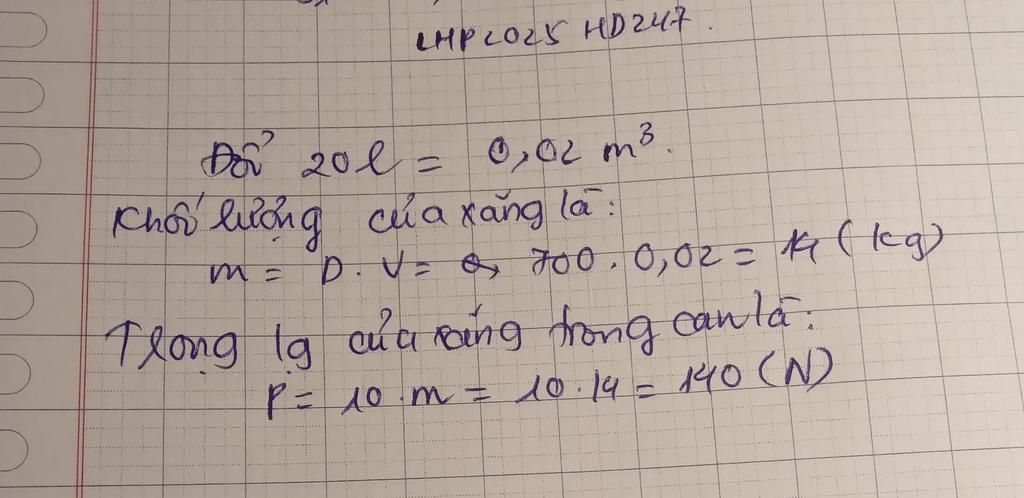 LHP2025 HD247.
Đổi 20l = 0,02 m³.
Khối lượng của xăng là:
m = D.V = 700.0,02 = 14 (kg)
Trọng lg của xăng trong can là:
P = 10.m = 10.14 = 140 (N)